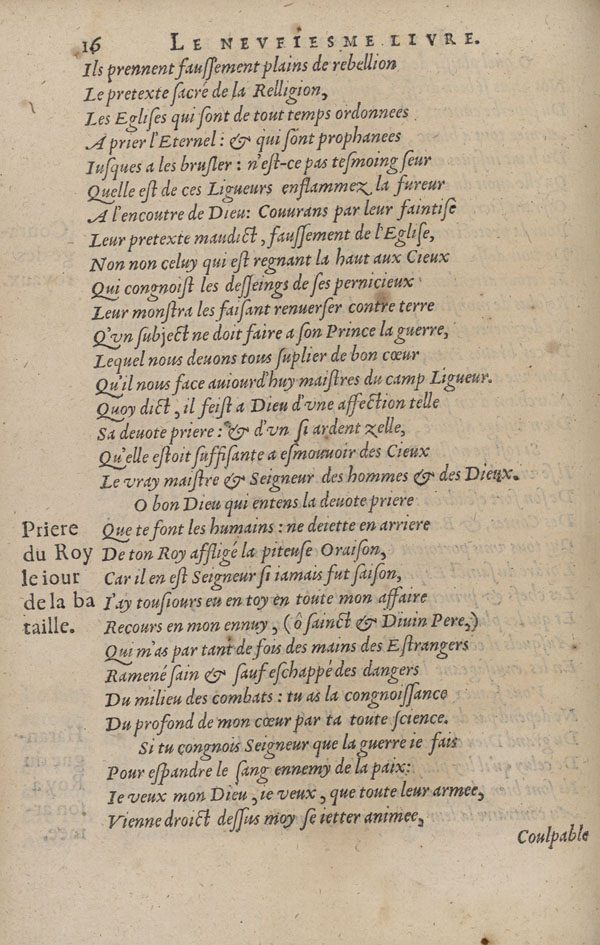 16 LE NEVFIESME LIVRE.
Ils prennent faussement plains de rebellion
Le pretexte sacré de la Relligion,
Les Eglises qui sont de tout temps ordonnees
A prier l'Eternel : & qui sont prophanees
Iusques a les brusler : n'est-ce pas tesmoing seur
Quelle est de ces Ligueurs enflammez la fureur
A l'encoutre de Dieu: Couurans par leur faintise
Leur pretexte maudict, faussement de l'Eglise,
Non non celuy qui est regnant la haut aux Cieux
Qui congnoist les desseings de ses pernicieux
Leur monstra les faisant renuerser contre terre
Q'vn subject ne doit faire a son Prince la guerre,
Lequel nous deuons tous suplier de bon cœur
Qu'il nous face auiourd'huy maistres du camp Ligueur.
Quoy dict, il feist a Dieu d'vne affection telle
Sa deuote priere : & d'vn si ardent zelle,
Qu'elle estoit suffisante a esmouuoir des Cieux
Le vray maistre & Seigneur des hommes & des Dieux.
O bon Dieu qui entens la deuote priere
Priere du Roy le iour de la ba taille.
Que te font les humains : ne deiette en arriere
De ton Roy affligé la piteuse Oraison,
Car il en est Seigneur si iamais fut saison,
I'ay tousiours eu en toy en toute mon affaire
Recours en mon ennuy, (ô sainct & Diuin Pere,)
Qui m'as par tant de fois des mains des Estrangers
Ramené sain & sauf eschappé des dangers
Du milieu des combats : tu as la congnoissance
Du profond de mon cœur par ta toute science.
Si tu congnois Seigneur que la guerre ie fais
Pour espandre le sang ennemy de la paix:
Ie veux mon Dieu, ie veux, que toute leur armee,
Vienne droict dessus moy se ietter animee,
Coulpable